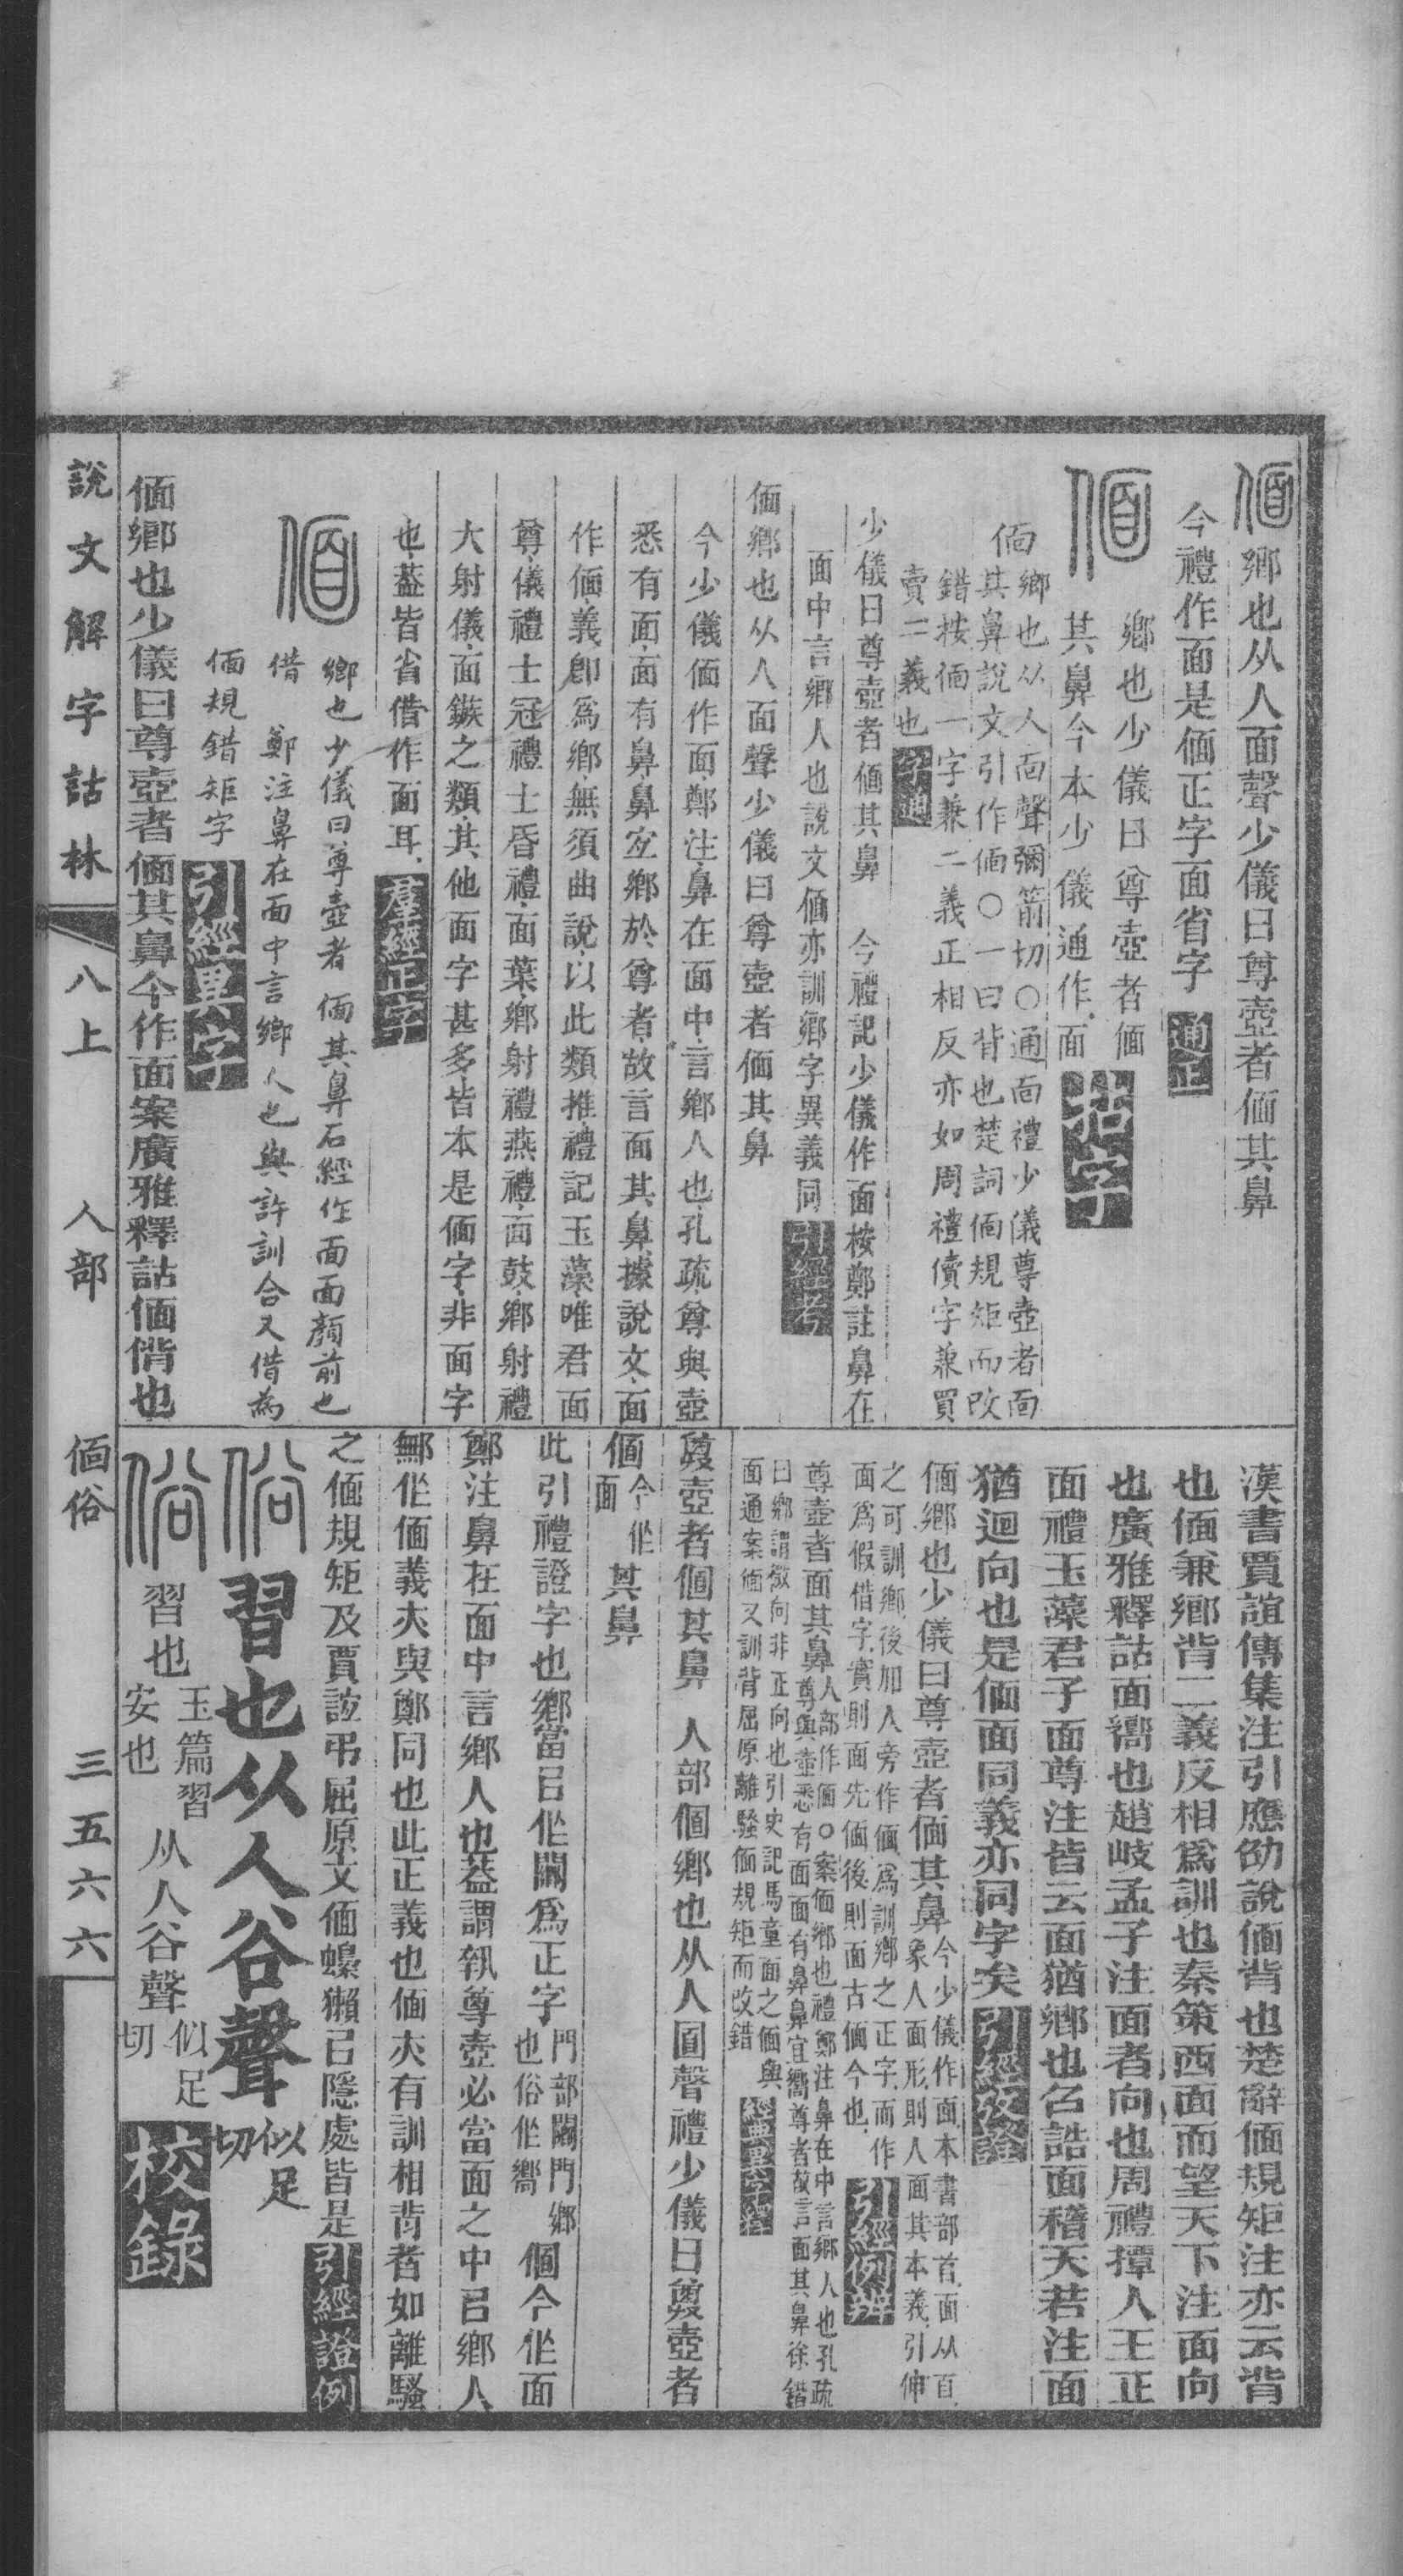 偭鄉也从人面聲少儀曰尊壺者偭其鼻
今禮作面是偭正字面省字 通正
偭 鄉也少儀曰尊壺者偭
其鼻今本少儀通作面
偭鄉也从人面聲彌箭切○通面禮少儀尊壺者面
其鼻說文引作偭○一曰背也楚詞偭規矩而改
錯按偭一字兼二義正相反亦如周禮儥字兼買
賣二義也 字通
少儀曰尊壺者偭其鼻 今禮記少儀作面按鄭註鼻在
面中言鄉人也說文偭亦訓鄉字異義同 引經考
偭鄉也从人面聲少儀曰尊壺者偭其鼻
今少儀偭作面鄭注鼻在面中言鄉人也孔疏尊與壺
悉有面面有鼻鼻宜鄉於尊者故言面其鼻據說文面
作偭義卽爲鄉無須曲說以此類推禮記玉藻唯君面
尊儀禮士冠禮士昏禮面葉鄉射禮燕禮面鼓鄉射禮
大射儀面鏃之類其他面字甚多皆本是偭字非面字
也葢皆省借作面耳 羣經正字
偭 鄉也少儀曰尊壺者 偭其鼻石經作面面顏前也
借 鄭注鼻在面中言鄉人也與許訓合又借為
偭規錯矩字 引經異字
偭鄉也少儀曰尊壺者偭其鼻今作面案廣雅釋詁偭偝也
漢書賈誼傳集注引應劭說偭背也楚辭偭規矩注亦云背
也偭兼鄉背二義反相爲訓也秦策西面而望天下注面向
也廣雅釋詁面嚮也趙岐孟子注面者向也周禮撢人王正
面禮玉藻君子面尊注皆云面猶鄉也召誥面稽天若注面
猶迴向也是偭面同義亦同字矣
偭鄉也少儀曰尊壺者偭其鼻今少儀作面本書部首面从𦣻
象人面形則人面其本義引伸
之可訓鄉後加人旁作偭爲訓鄉之正字而作
面爲假借字實則面先偭後則面古偭今也 引經例辨
尊壺者面其鼻人部作偭○案偭鄉也禮鄭注鼻在中言鄉人也孔疏
尊與壺悉有面面有鼻鼻宜嚮尊者故言面其鼻徐鍇
曰鄉謂微向非正向也引史記馬童面之偭與
面通案偭又訓背屈原離騷偭規矩而改錯
尊壺者偭其鼻 人部偭鄉也从人面聲禮少儀曰尊壺者
偭今作面其鼻
此引禮證字也鄉當㠯作闠爲正字門部闠門鄉也俗作嚮偭今作面
鄭注鼻在面中言鄉人也葢謂執尊壺必當面之中㠯鄉人
作偭義亦與鄭同也此正義也偭亦有訓相背者如離騷
之偭規矩及賈誼弔屈原文偭蟂獺㠯隱處皆是 引經證例
俗 習也从人谷聲 似足切
俗 習也玉篇習安也从人谷聲似足切 校錄
說文解字詁林 八上 人部 偭俗 三五六六